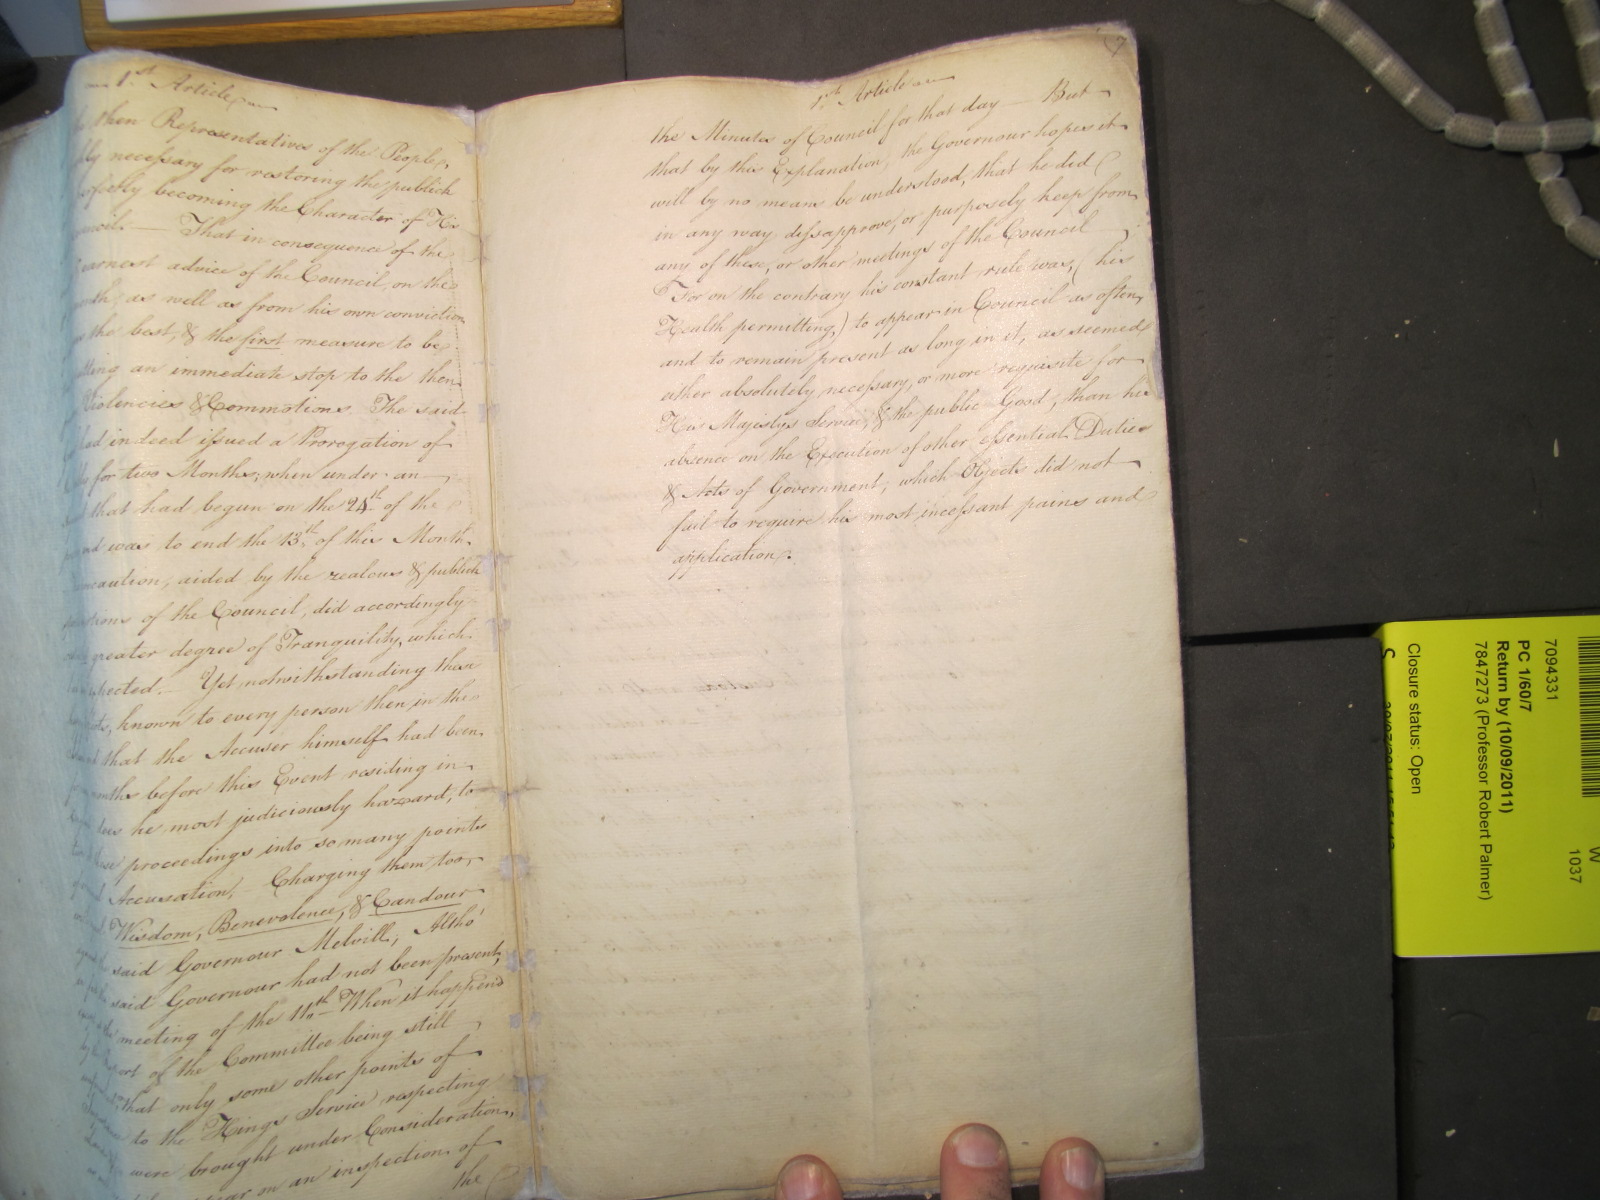 1st Article
then Representatives of the People,
necessary for restoring the publick
becoming the Character of His
— That in consequence of the
earnest advice of the Council, on the
as well as from his own conviction
the best, & the first measure to be
an immediate stop to the then
Violencies & Commotions. The said
had indeed issued a Prorogation of
for two Months, when under an
that had begun on the 24th of the
was to end the 13th of this Month.
aided by the zealous & publick
of the Council, did accordingly
greater degree of Tranquility, which
— Yet notwithstanding these
known to every person then in the
that the Accuser himself had been
before this Event residing in
he most judiciously hazard, to
proceedings into so many points
Accusation, Charging them too,
Wisdom, Benevolence, & Candour
said Governour Melvill, Altho'
said Governour had not been present,
meeting of the 11th When it happend
of the Committee being still
that only some other points of
to the Kings Service respecting
were brought under Consideration,
on an inspection of
the
7
1st Article
the Minutes of Council for that day — But
that by this Explanation, the Governour hopes it
will by no means be understood, that he did
in any way disapprove, or purposely keep from
any of these, or other meetings of the Council
For on the contrary his constant rule was, (his
Health permitting,) to appear in Council as often,
and to remain present as long in it, as seemed
either absolutely necessary, or more requisite for
His Majestys Service, & the public Good, than his
absence on the Execution of other essential Duties
& Acts of Government, which Objects did not
fail to require his most incessant pains and
application.
7094331
PC 1/60/7
Return by (10/09/2011)
7847273 (Professor Robert Palmer)
Closure status: Open
W
1037
S